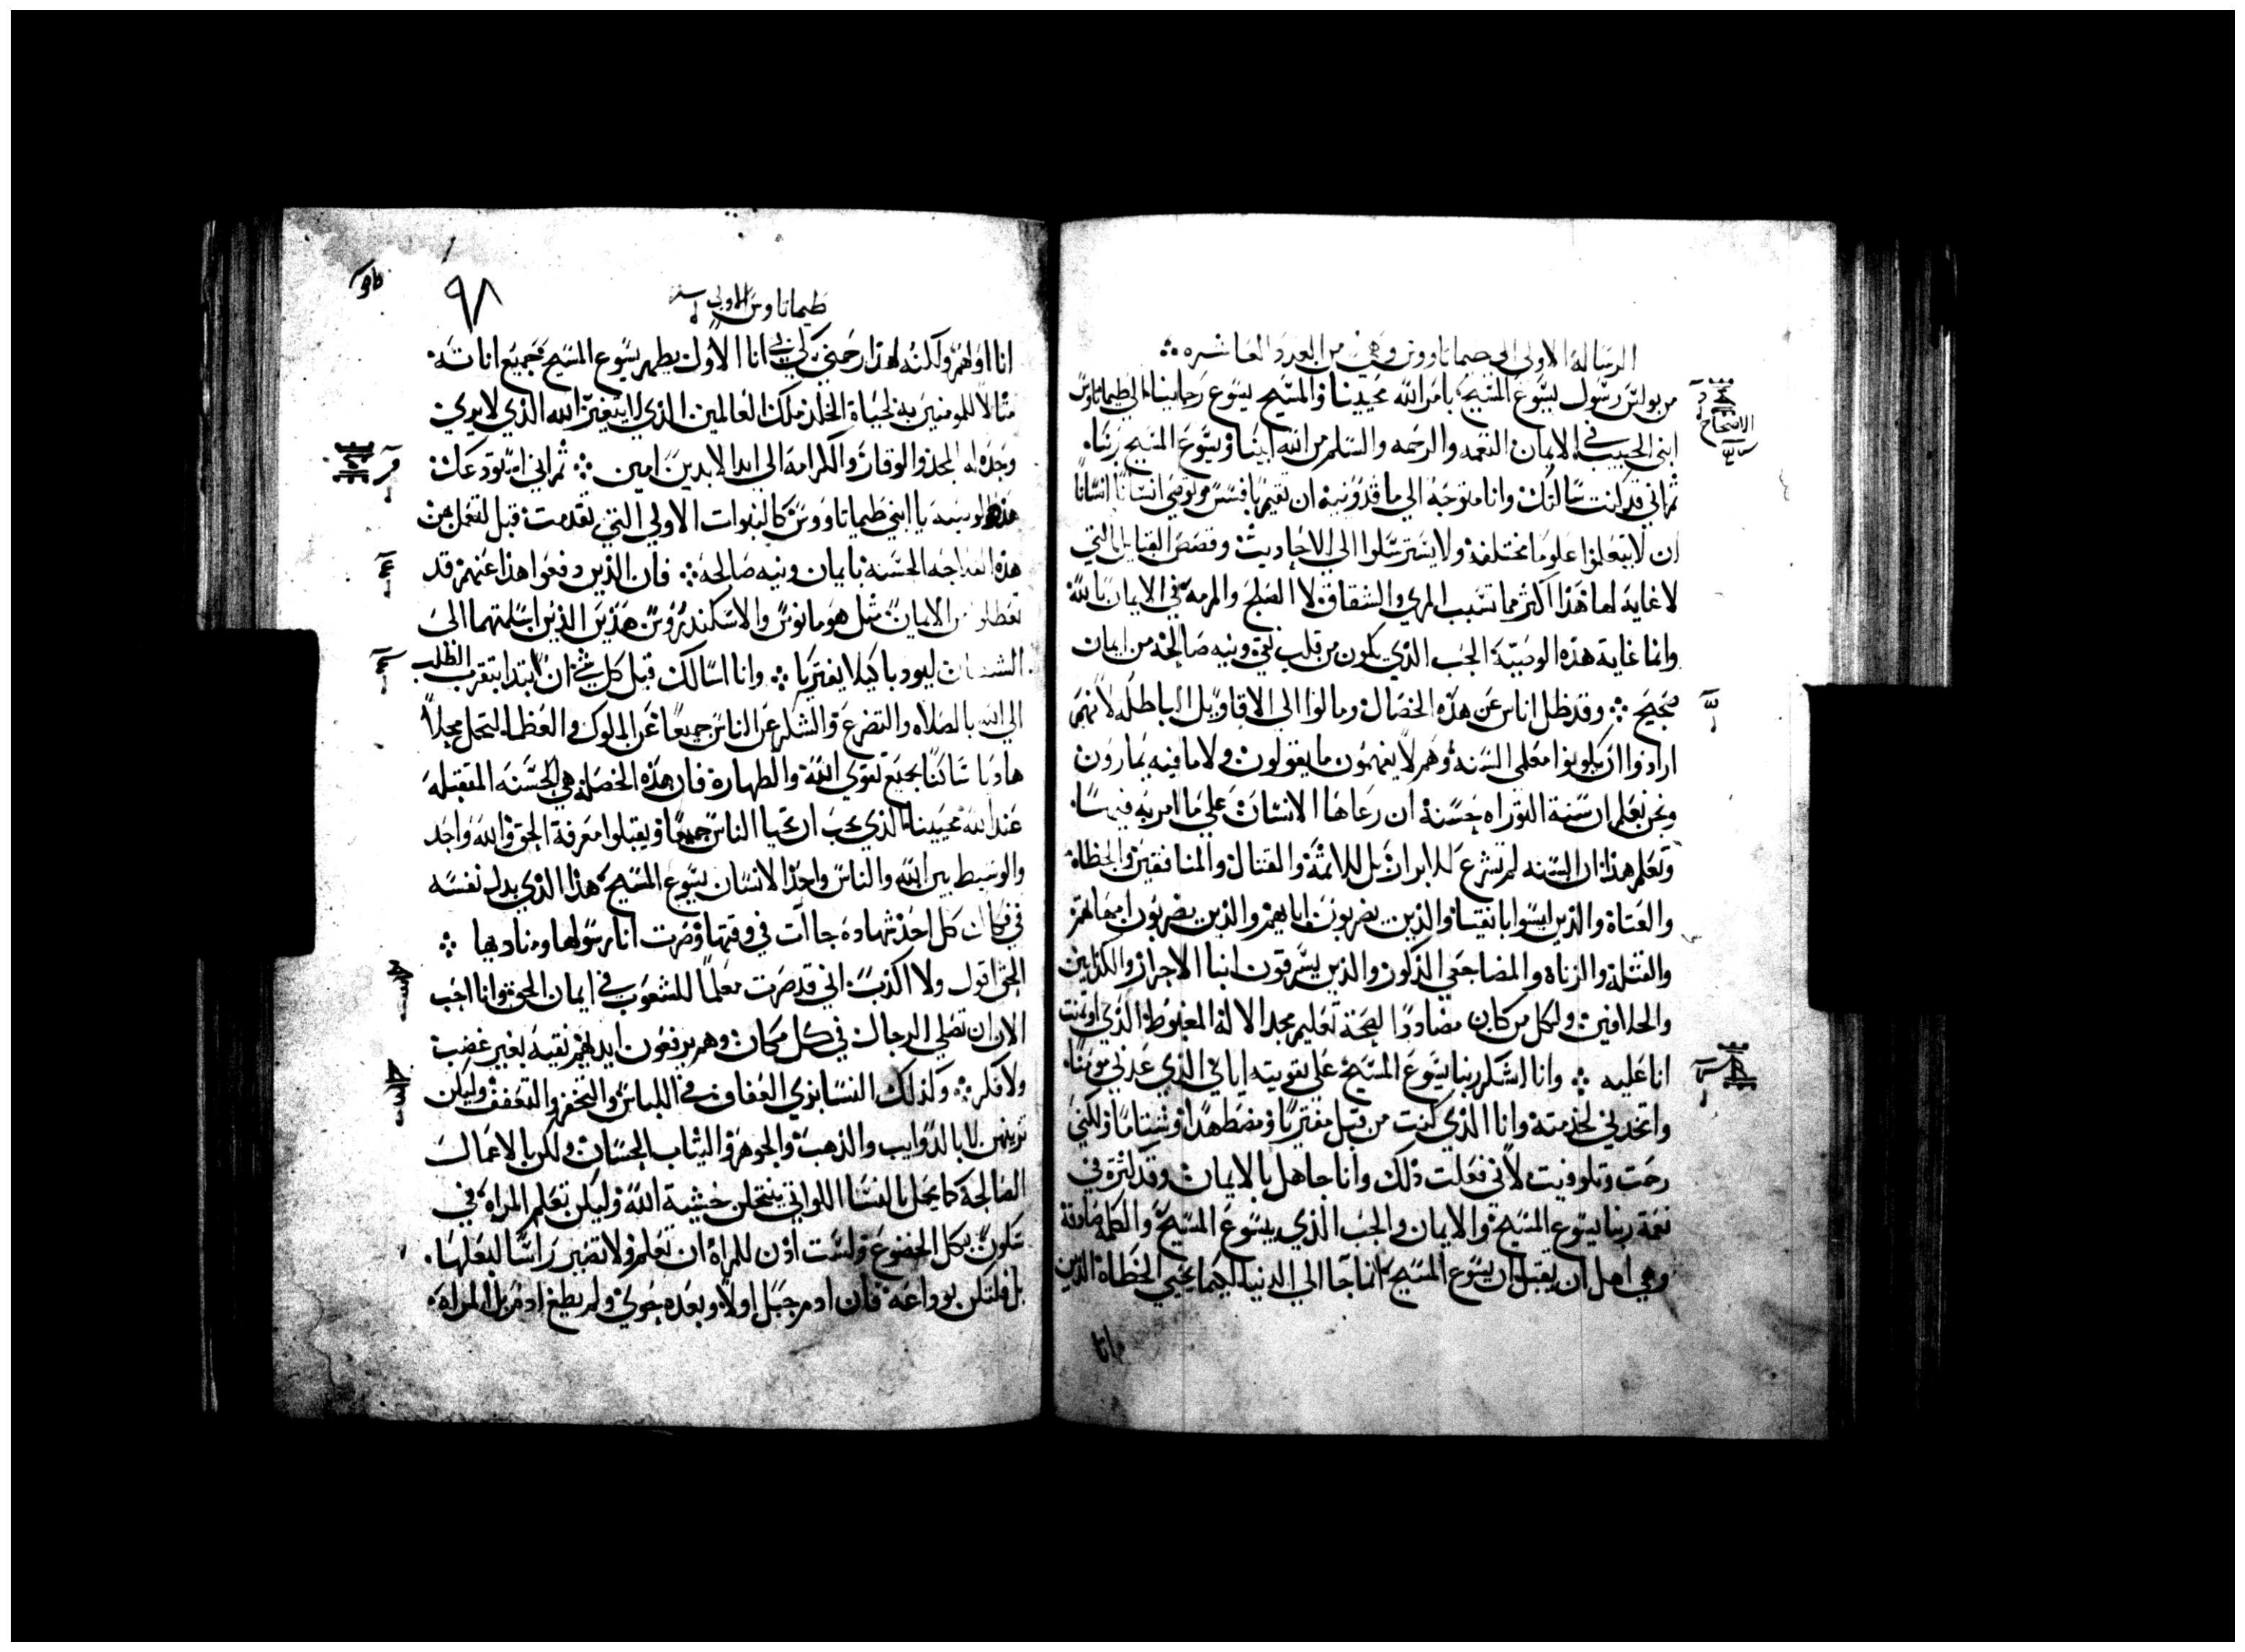 الرساله الاولى الى طيماتاووس وهي من العدد العاشره
من بولس رسول يسوع المسيح بامر الله محيينا والمسيح يسوع رجاينا الى طيماتاوس
ابني الحبيب في الايمان النعمه والرحمه والسلم من الله ابينا ويسوع المسيح ربنا
ثم اني قد كنت سالتك وانا متوجه الى ماقدونيه ان تقيم بافسس وتوصي انسانا انسانا
ان لا يتعلموا علوما مختلفة ولا يسترسلوا الى الاحاديث وقصص القبايل التي
لا غاية لها هذا اكثر مما تسبب المري والشقاق لا الصلح والمرمه في الايمان بالله
وانما غاية هذه الوصية الحب الذي يكون من قلب نقي ونيه صالحة من ايمان
صحيح وقد ظل اناس عن هذه الخصال ومالوا الى الاقاويل الباطله لانهم
ارادوا ان يكونوا معلمي السنة وهم لا يفهمون ما يقولون ولا ما فيه يمارون
ونحن نعلم ان سنة التوراه حسنة ان رعاها الانسان على ما امر به فيها
وتعلم هذا ان السنه لم تشرع للابرار بل للاثمة والقتال والمنافقين والخطاة
والعتاة والذين ليسوا باتقيا والذين يضربون اباهم والذين يضربون امهاتهم
والقتلة والزناة والمضاجعي الذكور والذين يسرقون ابنا الاحرار والكذابين
والحلافين ولكل من كان مضاددا لصحة تعليم مجد الاله المغبوط الذي اوتمنت
انا عليه وانا اشكر ربنا يسوع المسيح على تقويته اياي الذي عدني مومنا
واتخدني لخدمته وانا الذي كنت من قبل مفتريا ومضطهدا وشتاما ولكني
رحمت وتلوفيت لاني فعلت ذلك وانا جاهل بالايمان وقد كثرة في
نعمة ربنا يسوع المسيح والايمان والحب الذي بيسوع المسيح والكلمة صادقة
وهي اهل ان تقبل ان يسوع المسيح انما جا الى الدنيا لكيما يحيي الخطاة الذين
انا
٩٨
طيماتاوس الاولى
انا اولهم ولكنه لهذا رحمني لكي بي انا الاول يظهر يسوع المسيح جميع اناته
مثالا للمومنين به لحياة الخلد ملك العالمين الذي لا يتغير الله الذي لا يرى
وحده له المجد والوقار والكرامة الى ابد الابدين امين ثم اني استودعك
هذه الوصيه يا ابني طيماتاووس كالنبوات الاولى التي تقدمت قبل لتعمل من
هذه الفلاحه الحسنة بايمان ونيه صالحه فان الذين دفعوا هذا عنهم قد
تعطلوا من الايمان مثل هومانوس والاسكندروس هذين الذين اسلمتهما الى
الشيطان ليودبا كيلا يفتريا وانا اسالك قبل كل شي ان تبتدا بتقرب الطلب
الى الله بالصلاه والتضرع والشكر عن الناس جميعا عن الملوك والعظما لنحل محلا
هاديا ساكنا بجميع تقوى الله والطهارة فان هذه الخصلة هي الحسنه المتقبله
عند الله محيينا الذي يحب ان يحيا الناس جميعا ويقبلوا معرفة الحق والله واحد
والوسيط بين الله والناس واحد الانسان يسوع المسيح هذا الذي بدل نفسه
في فكاك كل احد شهاده جاات في وقتها وصرت انا رسولها ومناديها
الحق اقول ولا اكذب اني قد صرت معلما للشعوب في ايمان الحق وانا احب
الان ان تصلي الرجال في كل مكان وهم يرفعون ايديهم نقيه بغير غضب
ولا فكر وكذلك النسا بزي العفاف في اللباس والتخفر والتعفف وليكن
تزينهن لا بالدوايب والذهب والجوهر والثياب الحسان ولكن بالاعمال
الصالحة كما يجمل بالنسا اللواتي ينتحلن خشية الله وليكن تعلم المراه في
سكون بكل الخضوع ولست اذن للمراه ان تعلم ولا تصير راسا لبعلها
بل فلتكن بوداعه فان ادم جبل اولا وبعده حوى ولم يطغ ادم بل المراه